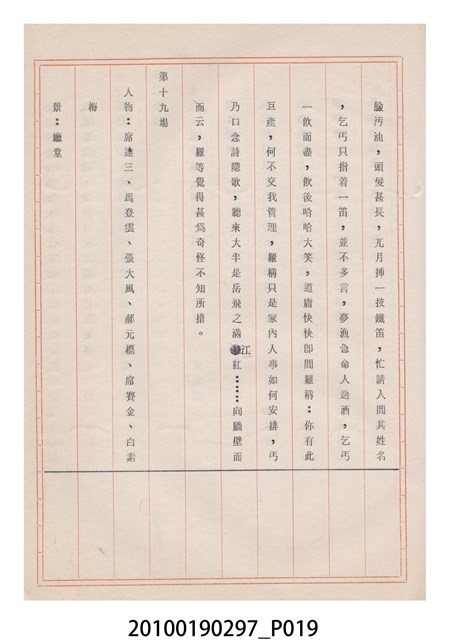 臉污油，頭髮甚長，兀月揷一技鐵笛，忙請入間其姓名
，乞丐只指着一笛，並不多言，夢漁急命人送酒，乞丐
一飲而盡，飲後哈哈大笑，道庸快快卽間羅稱：你有此
巨產，何不交我管理，羅稱只是家內人事如何安排，丐
乃口念詩隱歌，聽來大半是岳飛之滿江紅……向牆壁而
而云，羅等覺得甚爲奇怪不知所措。
第十九場
人物：席達三、馬登雲、張大風、郝元標、席賽金、白素
梅
景：廳堂
20100190297_P019